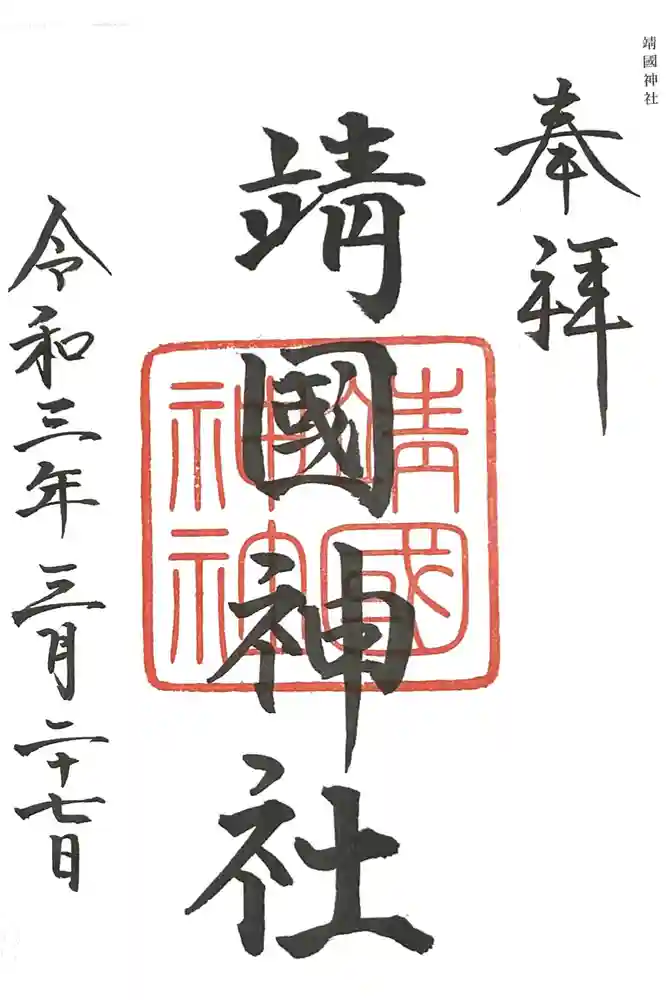 靖國神社
奉拝
靖國神社
靖國
神社
令和三年三月二十七日